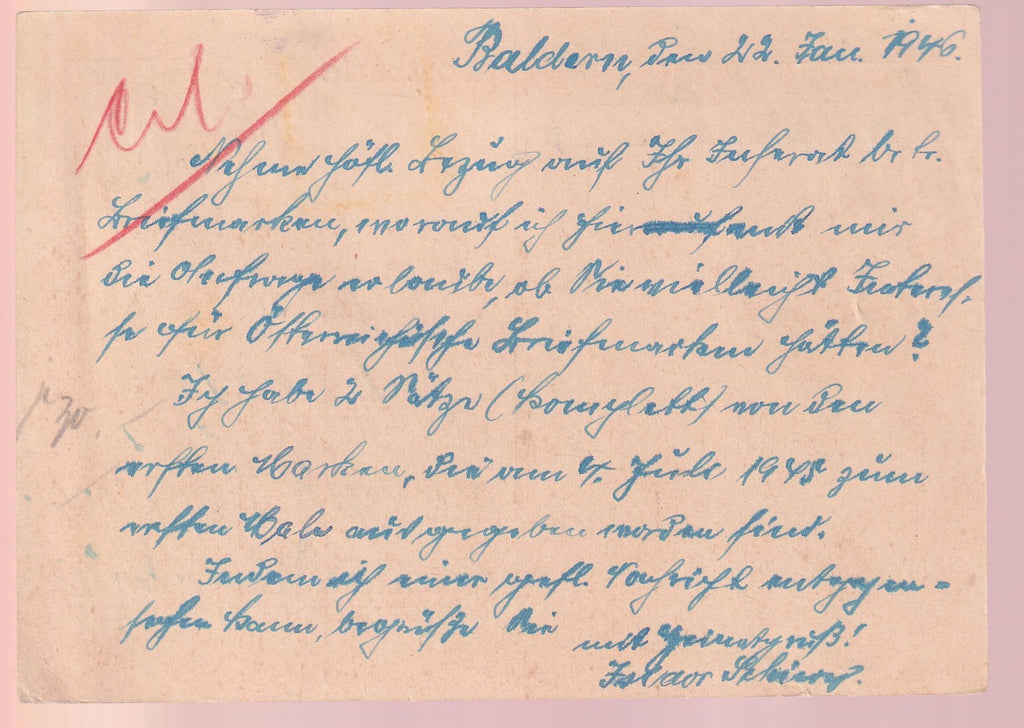 Baldern, den 22. Jan. 1946.
Nehme höfl. Bezug auf Ihr Inserat betr.
Briefmarken, worauf ich hier mir
die Anfrage erlaube, ob Sie vielleicht Interes-
se für Österreichische Briefmarken hätten?
Ich habe 2 Sätze (komplett) von den
ersten Marken, die am 4. Juli 1945 zum
ersten Male ausgegeben worden sind.
Indem ich einer gefl. Nachricht entgegen-
sehen kann, begrüße Sie
mit Heimatgruß!
Isidor